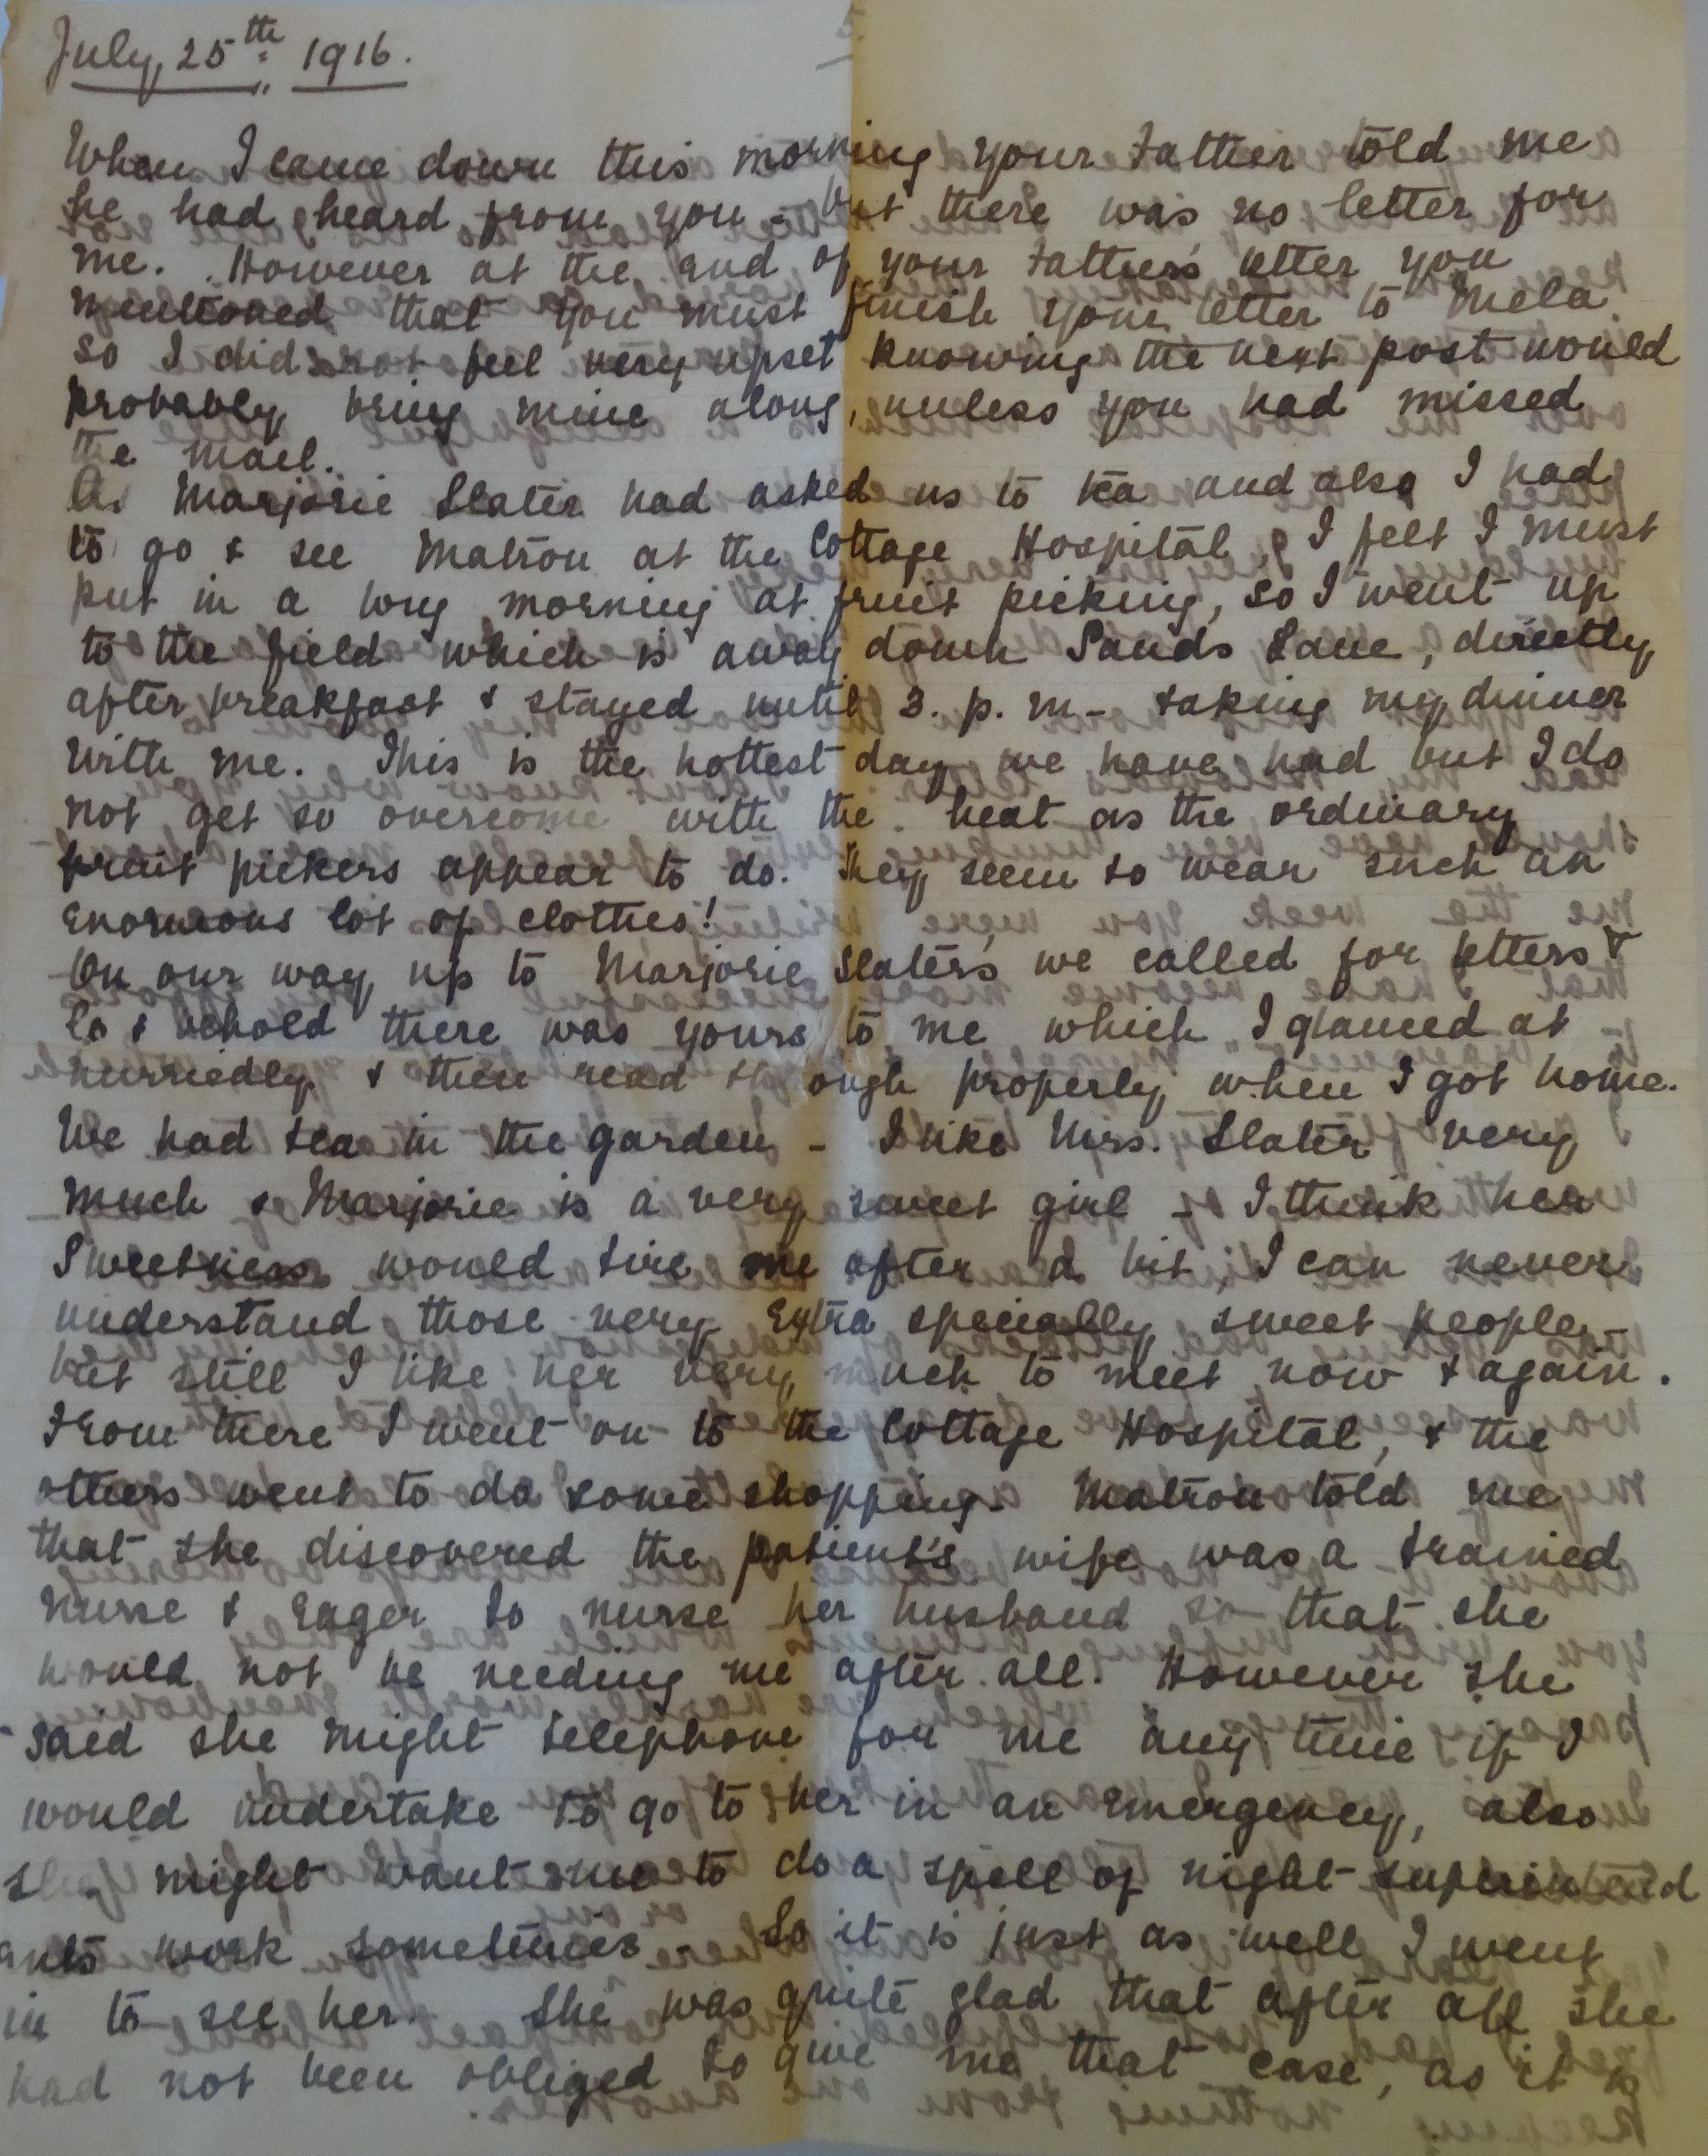 July, 25th 1916.
When I came down this morning your Father told me
he had heard from you - but there was no letter for
me. However at the end of your Father's letter you
mentioned that you must finish your letter to Mela
so I did not feel very upset knowing the next post would
probably bring mine along, unless you had missed
the mail.
As Marjorie Slater had asked us to tea and also I had
to go & see Matron at the Cottage Hospital, I felt I must
put in a long morning at fruit picking, so I went up
to the field which is away down Sands Lane, directly
after breakfast & stayed until 3. p. m - taking my dinner
with me. This is the hottest day we have had but I do
not get so overcome with the heat as the ordinary
fruit pickers appear to do. They seem to wear such an
enormous lot of clothes!
On our way up to Marjorie Slater's we called for letters &
lo & behold there was yours to me which I glanced at
hurriedly & then read through properly when I got home.
We had tea in the garden - I like Mrs. Slater very
much & Marjorie is a very sweet girl - I think her
sweetness would tire me after a bit, I can never
understand those very extra specially sweet people -
but still I like her very much to meet now & again.
From there I went on to the Cottage Hospital, & the
others went to do some shopping. Matron told me
that she discovered the patient's wife was a trained
nurse & eager to nurse her husband so that she
would not be needing me after all. However she
said she might telephone for me any time if I
would undertake to go to her in an emergency, also
she might want me to do a spell of night superintend
ants work sometimes. So it is just as well I went
in to see her. She was quite glad that after all she
had not been obliged to give me that case, as it is